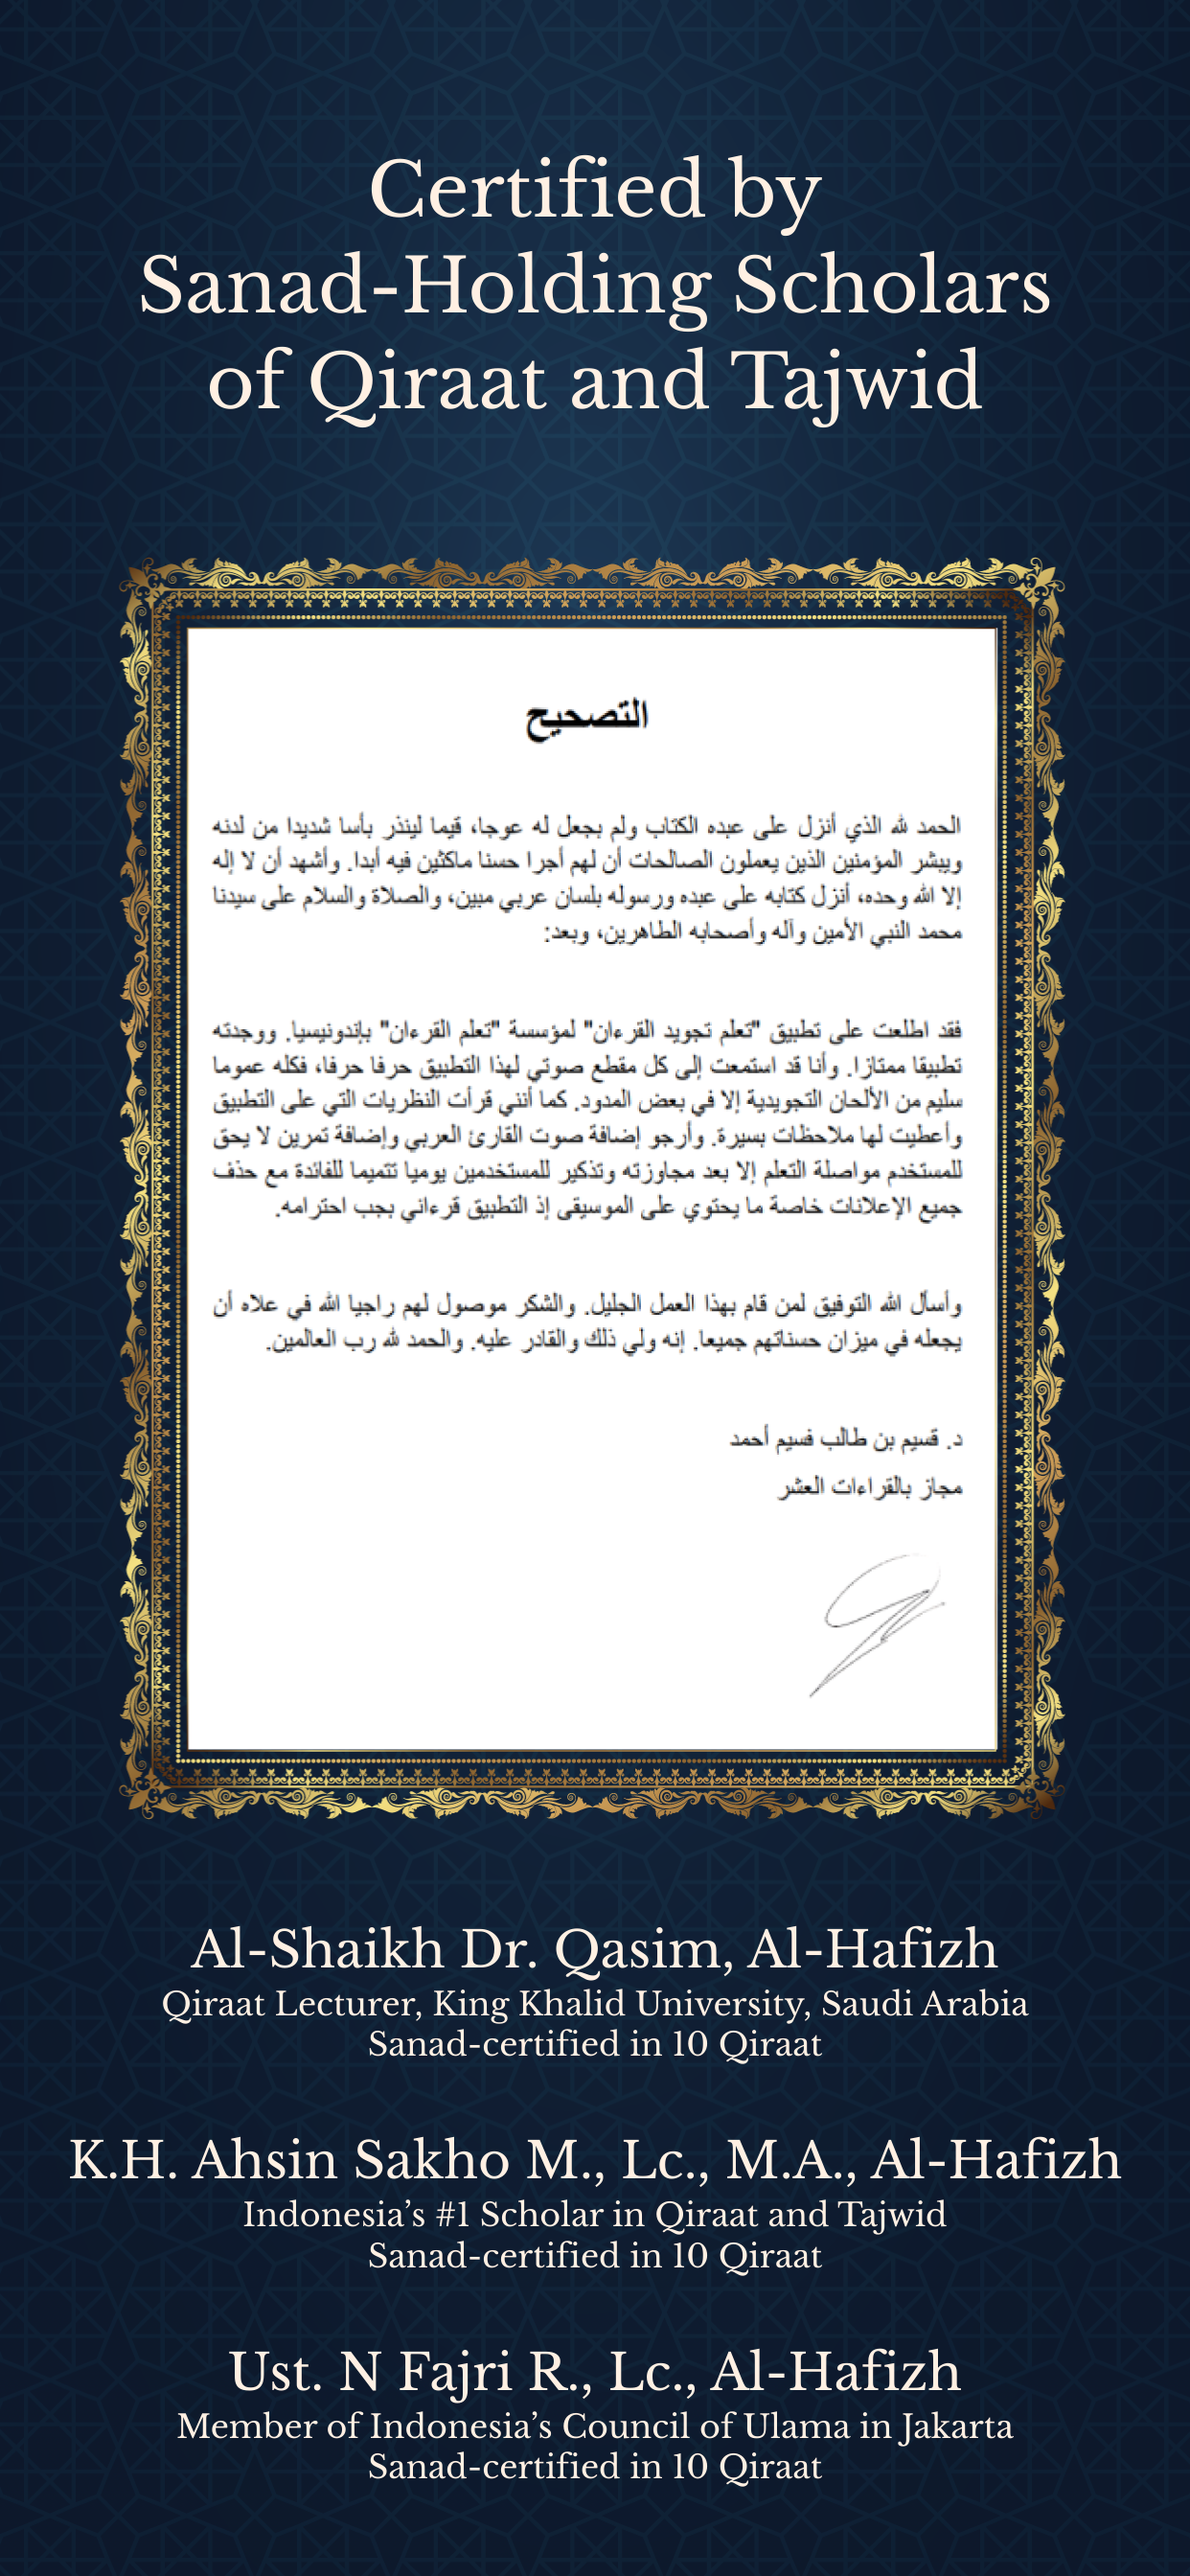 Certified by
Sanad-Holding Scholars
of Qiraat and Tajwid
التصحيح
الحمد لله الذي أنزل على عبده الكتاب ولم يجعل له عوجا، قيما لينذر بأسا شديدا من لدنه
ويبشر المؤمنين الذين يعملون الصالحات أن لهم أجرا حسنا ماكثين فيه أبدا. وأشهد أن لا إله
إلا الله وحده، أنزل كتابه على عبده ورسوله بلسان عربي مبين، والصلاة والسلام على سيدنا
محمد النبي الأمين وآله وأصحابه الطاهرين، وبعد:
فقد اطلعت على تطبيق "تعلم تجويد القرءان" لمؤسسة "تعلم القرءان" بإندونيسيا. ووجدته
تطبيقا ممتازا. وأنا قد استمعت إلى كل مقطع صوتي لهذا التطبيق حرفا حرفا، فكله عموما
سليم من الألحان التجويدية إلا في بعض المدود. كما أنني قرأت النظريات التي على التطبيق
وأعطيت لها ملاحظات يسيرة. وأرجو إضافة صوت القارئ العربي وإضافة تمرين لا يحق
للمستخدم مواصلة التعلم إلا بعد مجاوزته وتذكير للمستخدمين يوميا تتميما للفائدة مع حذف
جميع الإعلانات خاصة ما يحتوي على الموسيقى إذ التطبيق قرءاني يجب احترامه.
وأسأل الله التوفيق لمن قام بهذا العمل الجليل. والشكر موصول لهم راجيا الله في علاه أن
يجعله في ميزان حسناتهم جميعا. إنه ولي ذلك والقادر عليه. والحمد لله رب العالمين.
د. قسيم بن طالب قسيم أحمد
مجاز بالقراءات العشر
Al-Shaikh Dr. Qasim, Al-Hafizh
Qiraat Lecturer, King Khalid University, Saudi Arabia
Sanad-certified in 10 Qiraat
K.H. Ahsin Sakho M., Lc., M.A., Al-Hafizh
Indonesia’s #1 Scholar in Qiraat and Tajwid
Sanad-certified in 10 Qiraat
Ust. N Fajri R., Lc., Al-Hafizh
Member of Indonesia’s Council of Ulama in Jakarta
Sanad-certified in 10 Qiraat